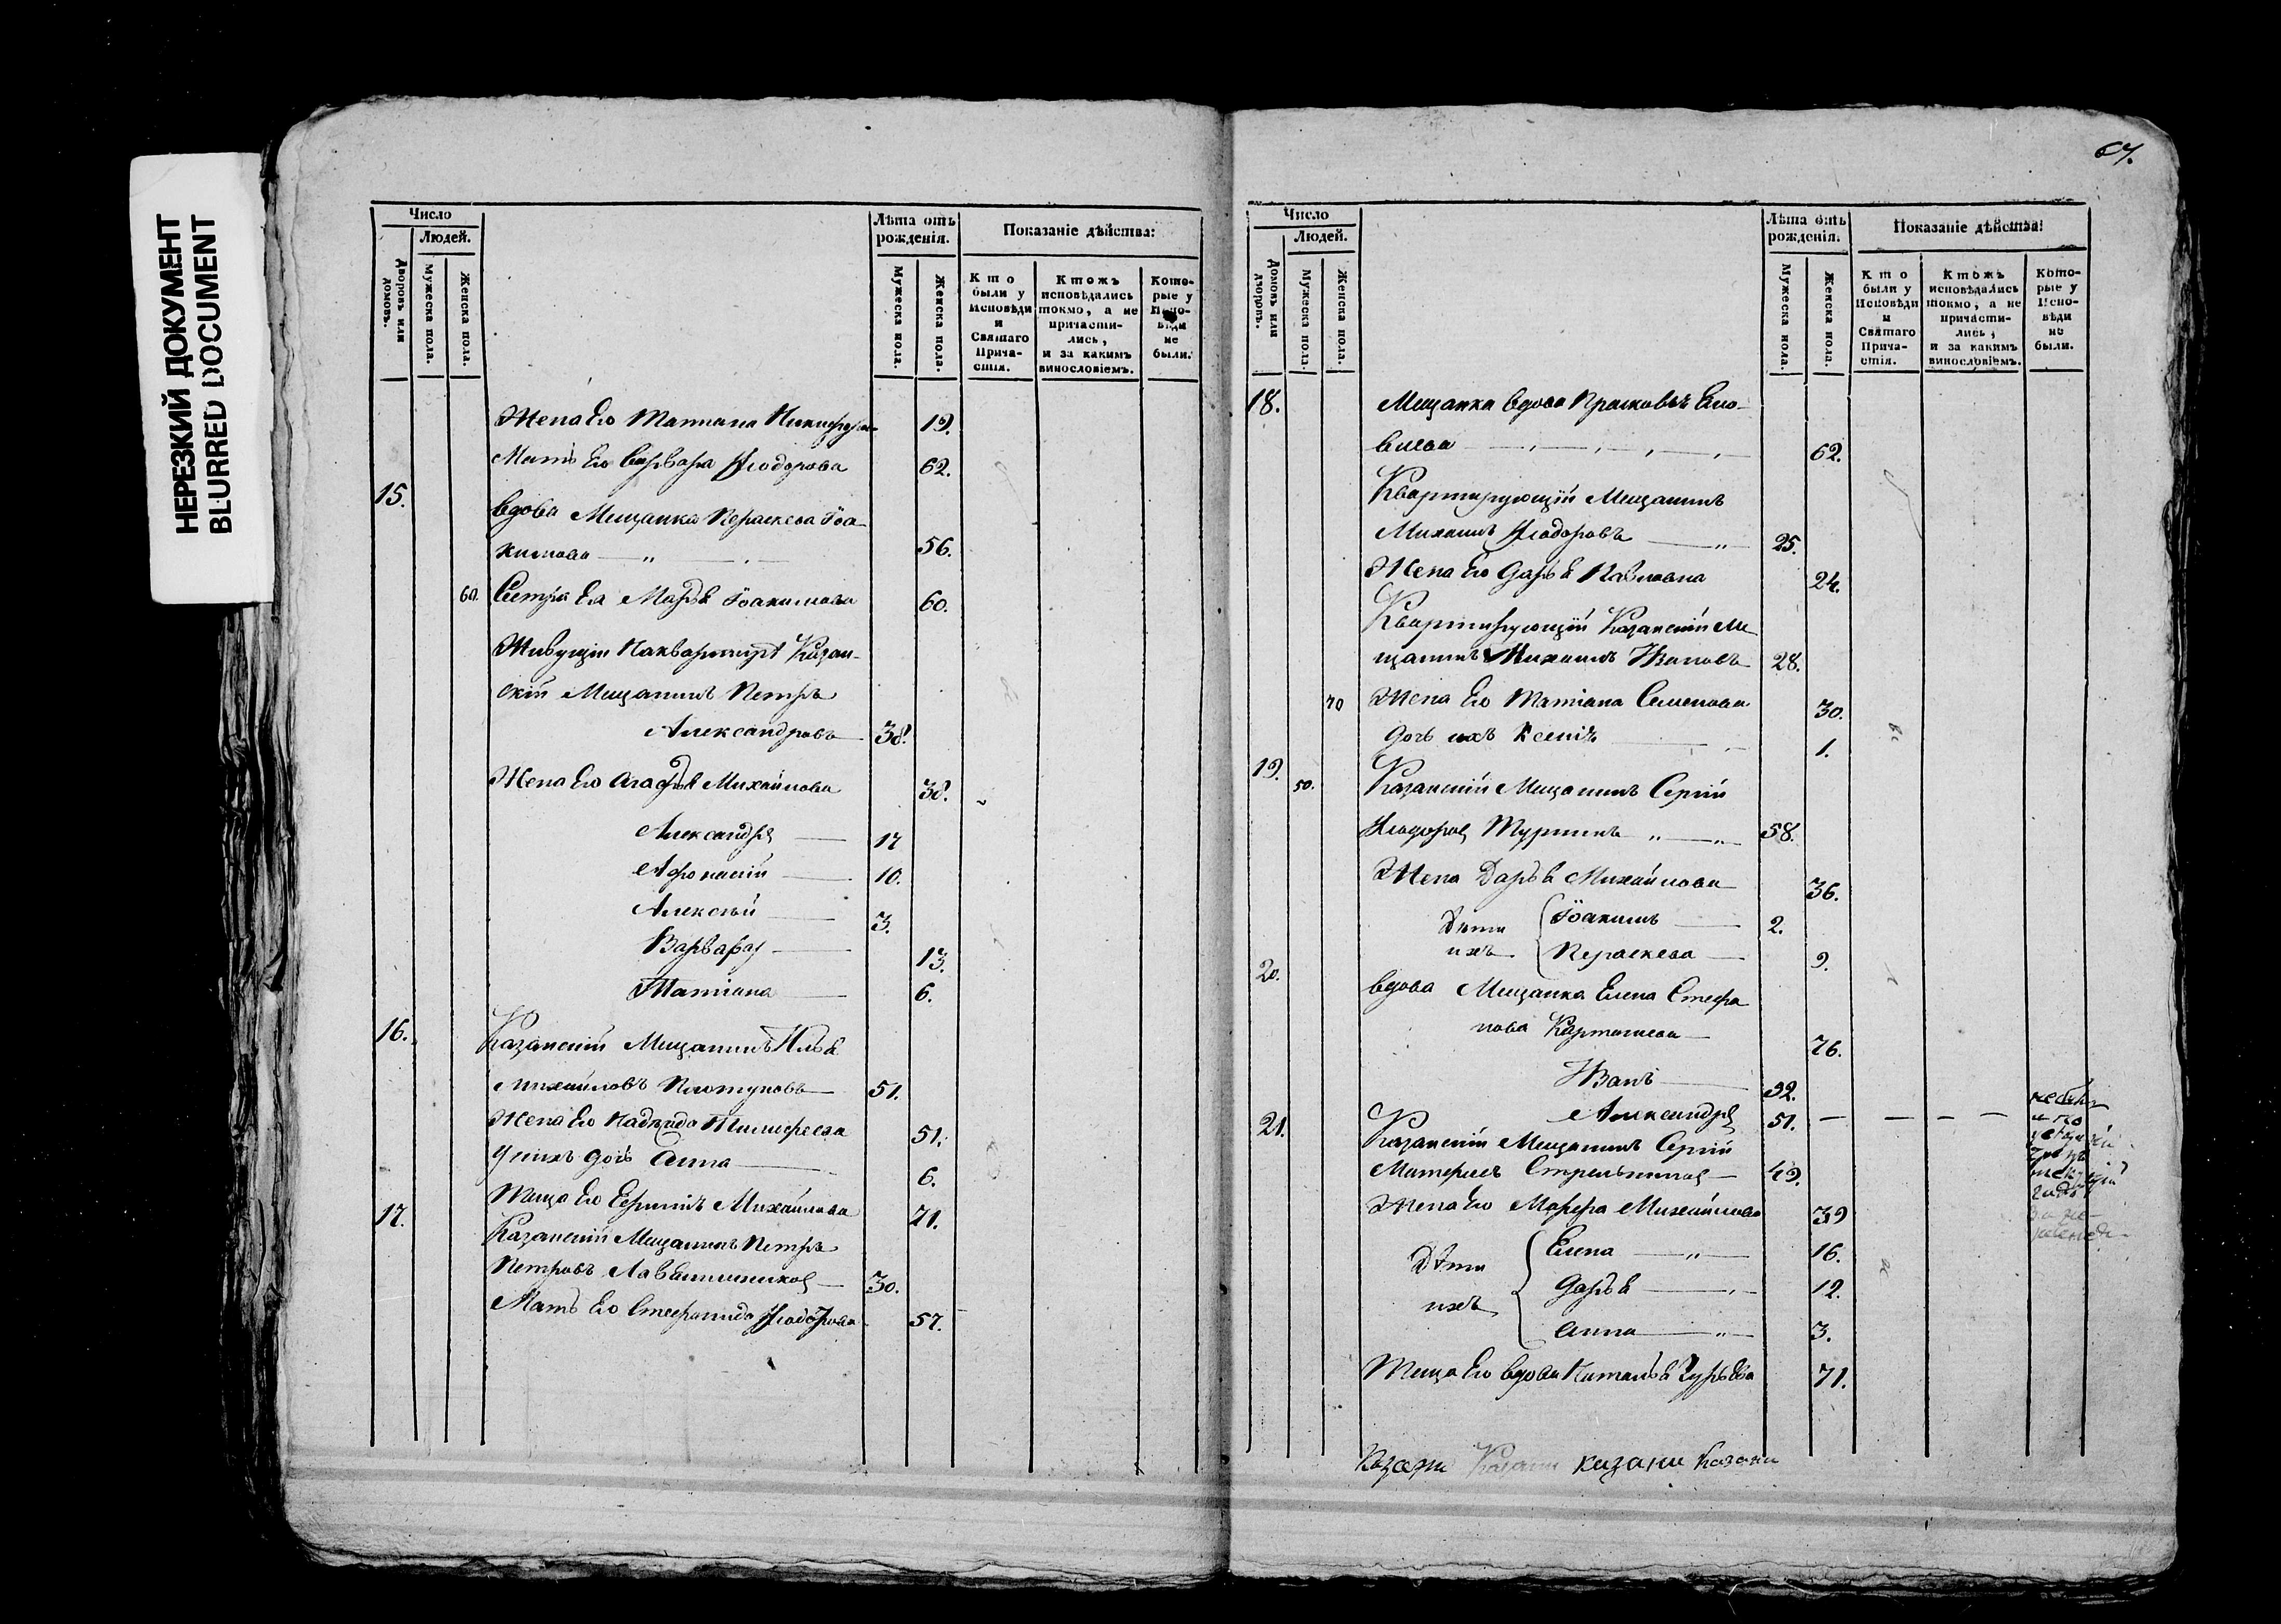 НЕРЕЗКИЙ ДОКУМЕНТ
BLURRED DOCUMENT
Число
Людей.
Дворовъ или домовъ.
Мужеска пола.
Женска пола.
Лѣта отъ рожденія.
Мужеска пола.
Женска пола.
Показаніе дѣйства:
Кто были у Исповѣди и Святаго Причастія.
Ктожъ исповѣдались токмо, а не причастились, и за какимъ винословіемъ.
Которые у Исповѣди не были.
Жена Его Татиана 19.
Мать Его Варвара Ѳеодорова 62.
15.
вдова Мещанка Параскева Іоа-
кимова 56.
60. Сестра Ея Марья Іоакимова 60.
Живущій Наквартирѣ Казан-
скій Мещанинъ Петръ
Александровъ 38.
Жена Его Агафья Михайлова 38.
Александръ 17
Афонасій 10.
Алексѣй 3.
Варвара 13.
Татиана 6.
16. Казанскій Мещанинъ Илья
Михайловъ 51.
Жена Его Надежда Тимофеева 51.
У нихъ дочь Анна 6.
Теща Его Михайлова 71.
17. Казанскій Мещанинъ Петръ
Петровъ 30.
Мать Его Стефанида Ѳеодорова 57.
67.
Число
Людей.
Домовъ или дворовъ.
Мужеска пола.
Женска пола.
Лѣта отъ рожденія.
Мужеска пола.
Женска пола.
Показаніе дѣйства:
Кто были у Исповѣди и Святаго Причастія.
Ктожъ исповѣдались токмо, а не причастились, и за какимъ винословіемъ.
Которые у Исповѣди не были.
18. Мещанка вдова
62.
Квартирующій Мещанинъ
Михаилъ Ѳеодоровъ 25.
Жена Его Дарья Павловна 24.
Квартирующій Казанскій Ме-
щанинъ Михаилъ Ивановъ 28.
70 Жена Его Татиана Семенова 30.
Дочь ихъ Ксенія 1.
19. 50. Казанскій Мещанинъ Сергій
Ѳеодоровъ 58.
Жена Дарья Михайлова 36.
Дѣти ихъ
Іоакимъ 2.
Параскева 9.
20.
вдова Мещанка Елена Стефа
нова 76.
Иванъ 32.
Александръ 51.
21. Казанскій Мещанинъ Сергій
49.
Жена Его Марфа Михайлова 39
Дѣти ихъ
Елена 16.
Дарья 12.
Анна 3.
Теща Его вдова Наталья Гурьева 71.
Казани Казани казани Казани